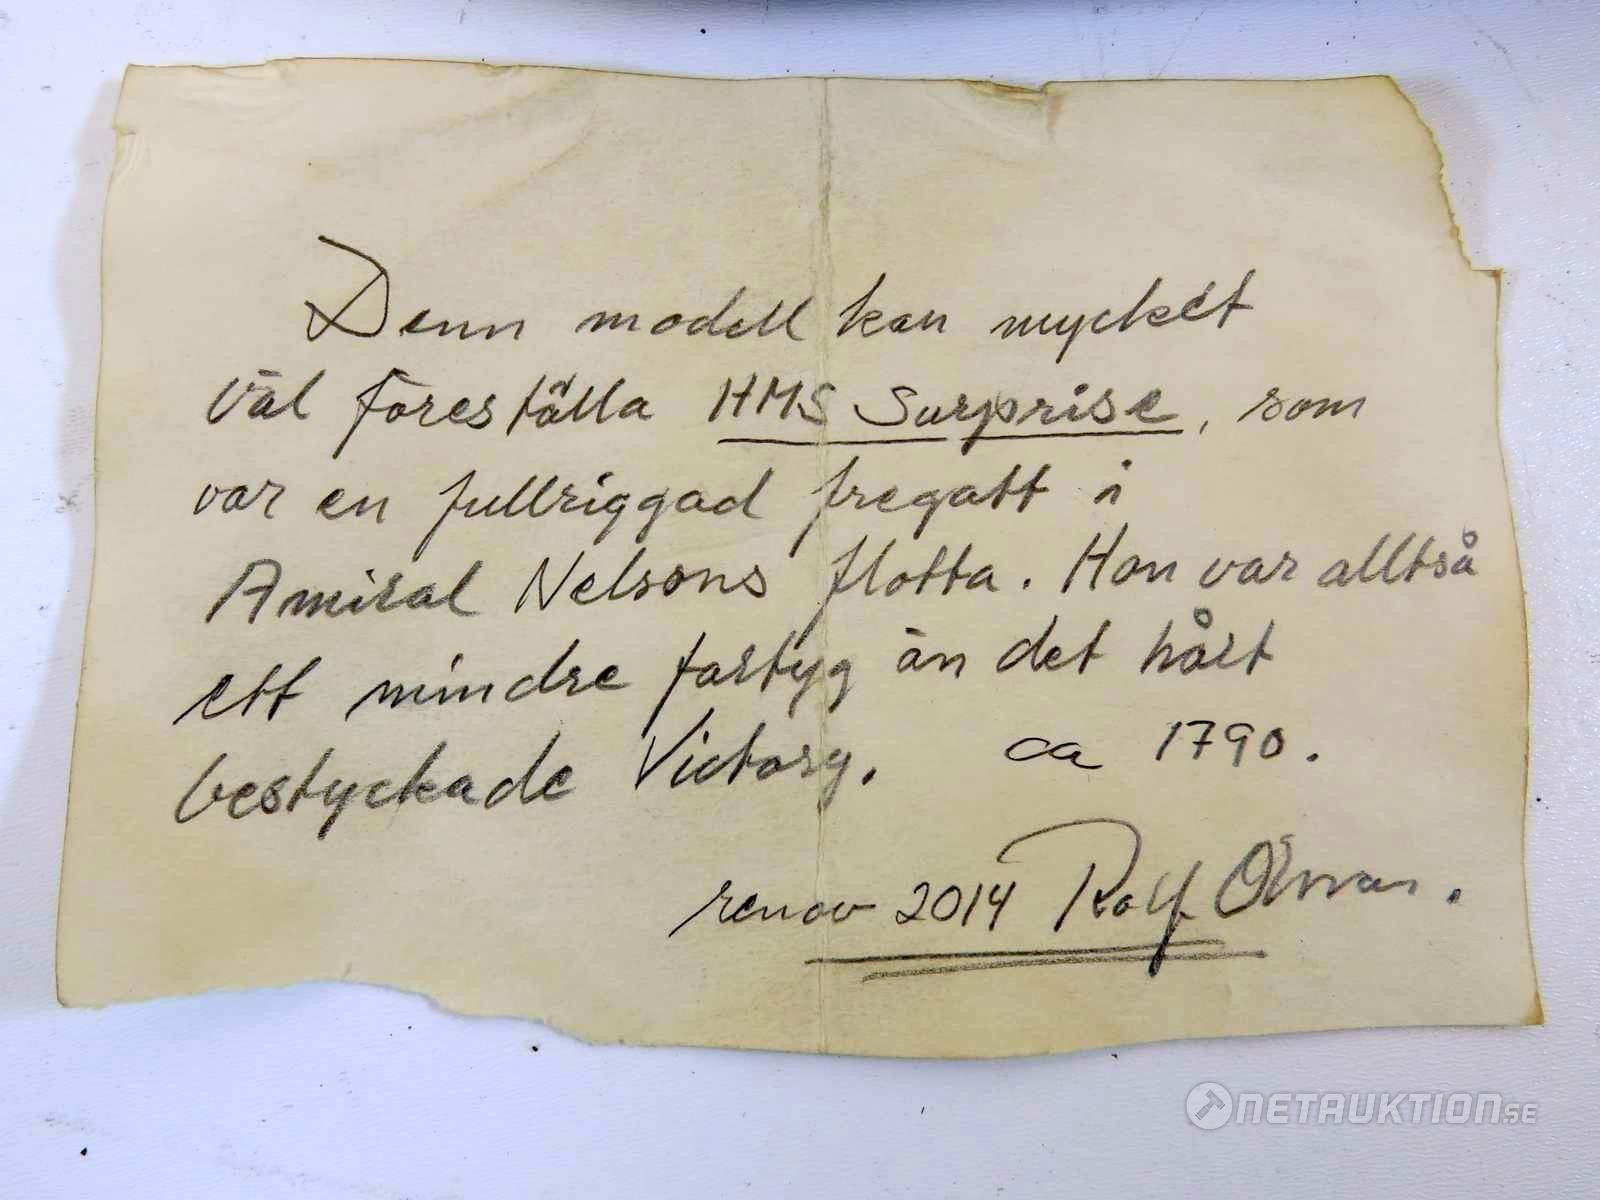 Denn modell kan mycket
väl föreställa HMS Surprise, som
var en fullriggad fregatt i
Amiral Nelsons flotta. Hon var alltså
ett mindre fartyg än det hårt
bestyckade Victory. ca 1790.
renov 2014 Rolf
NETAUKTION.SE